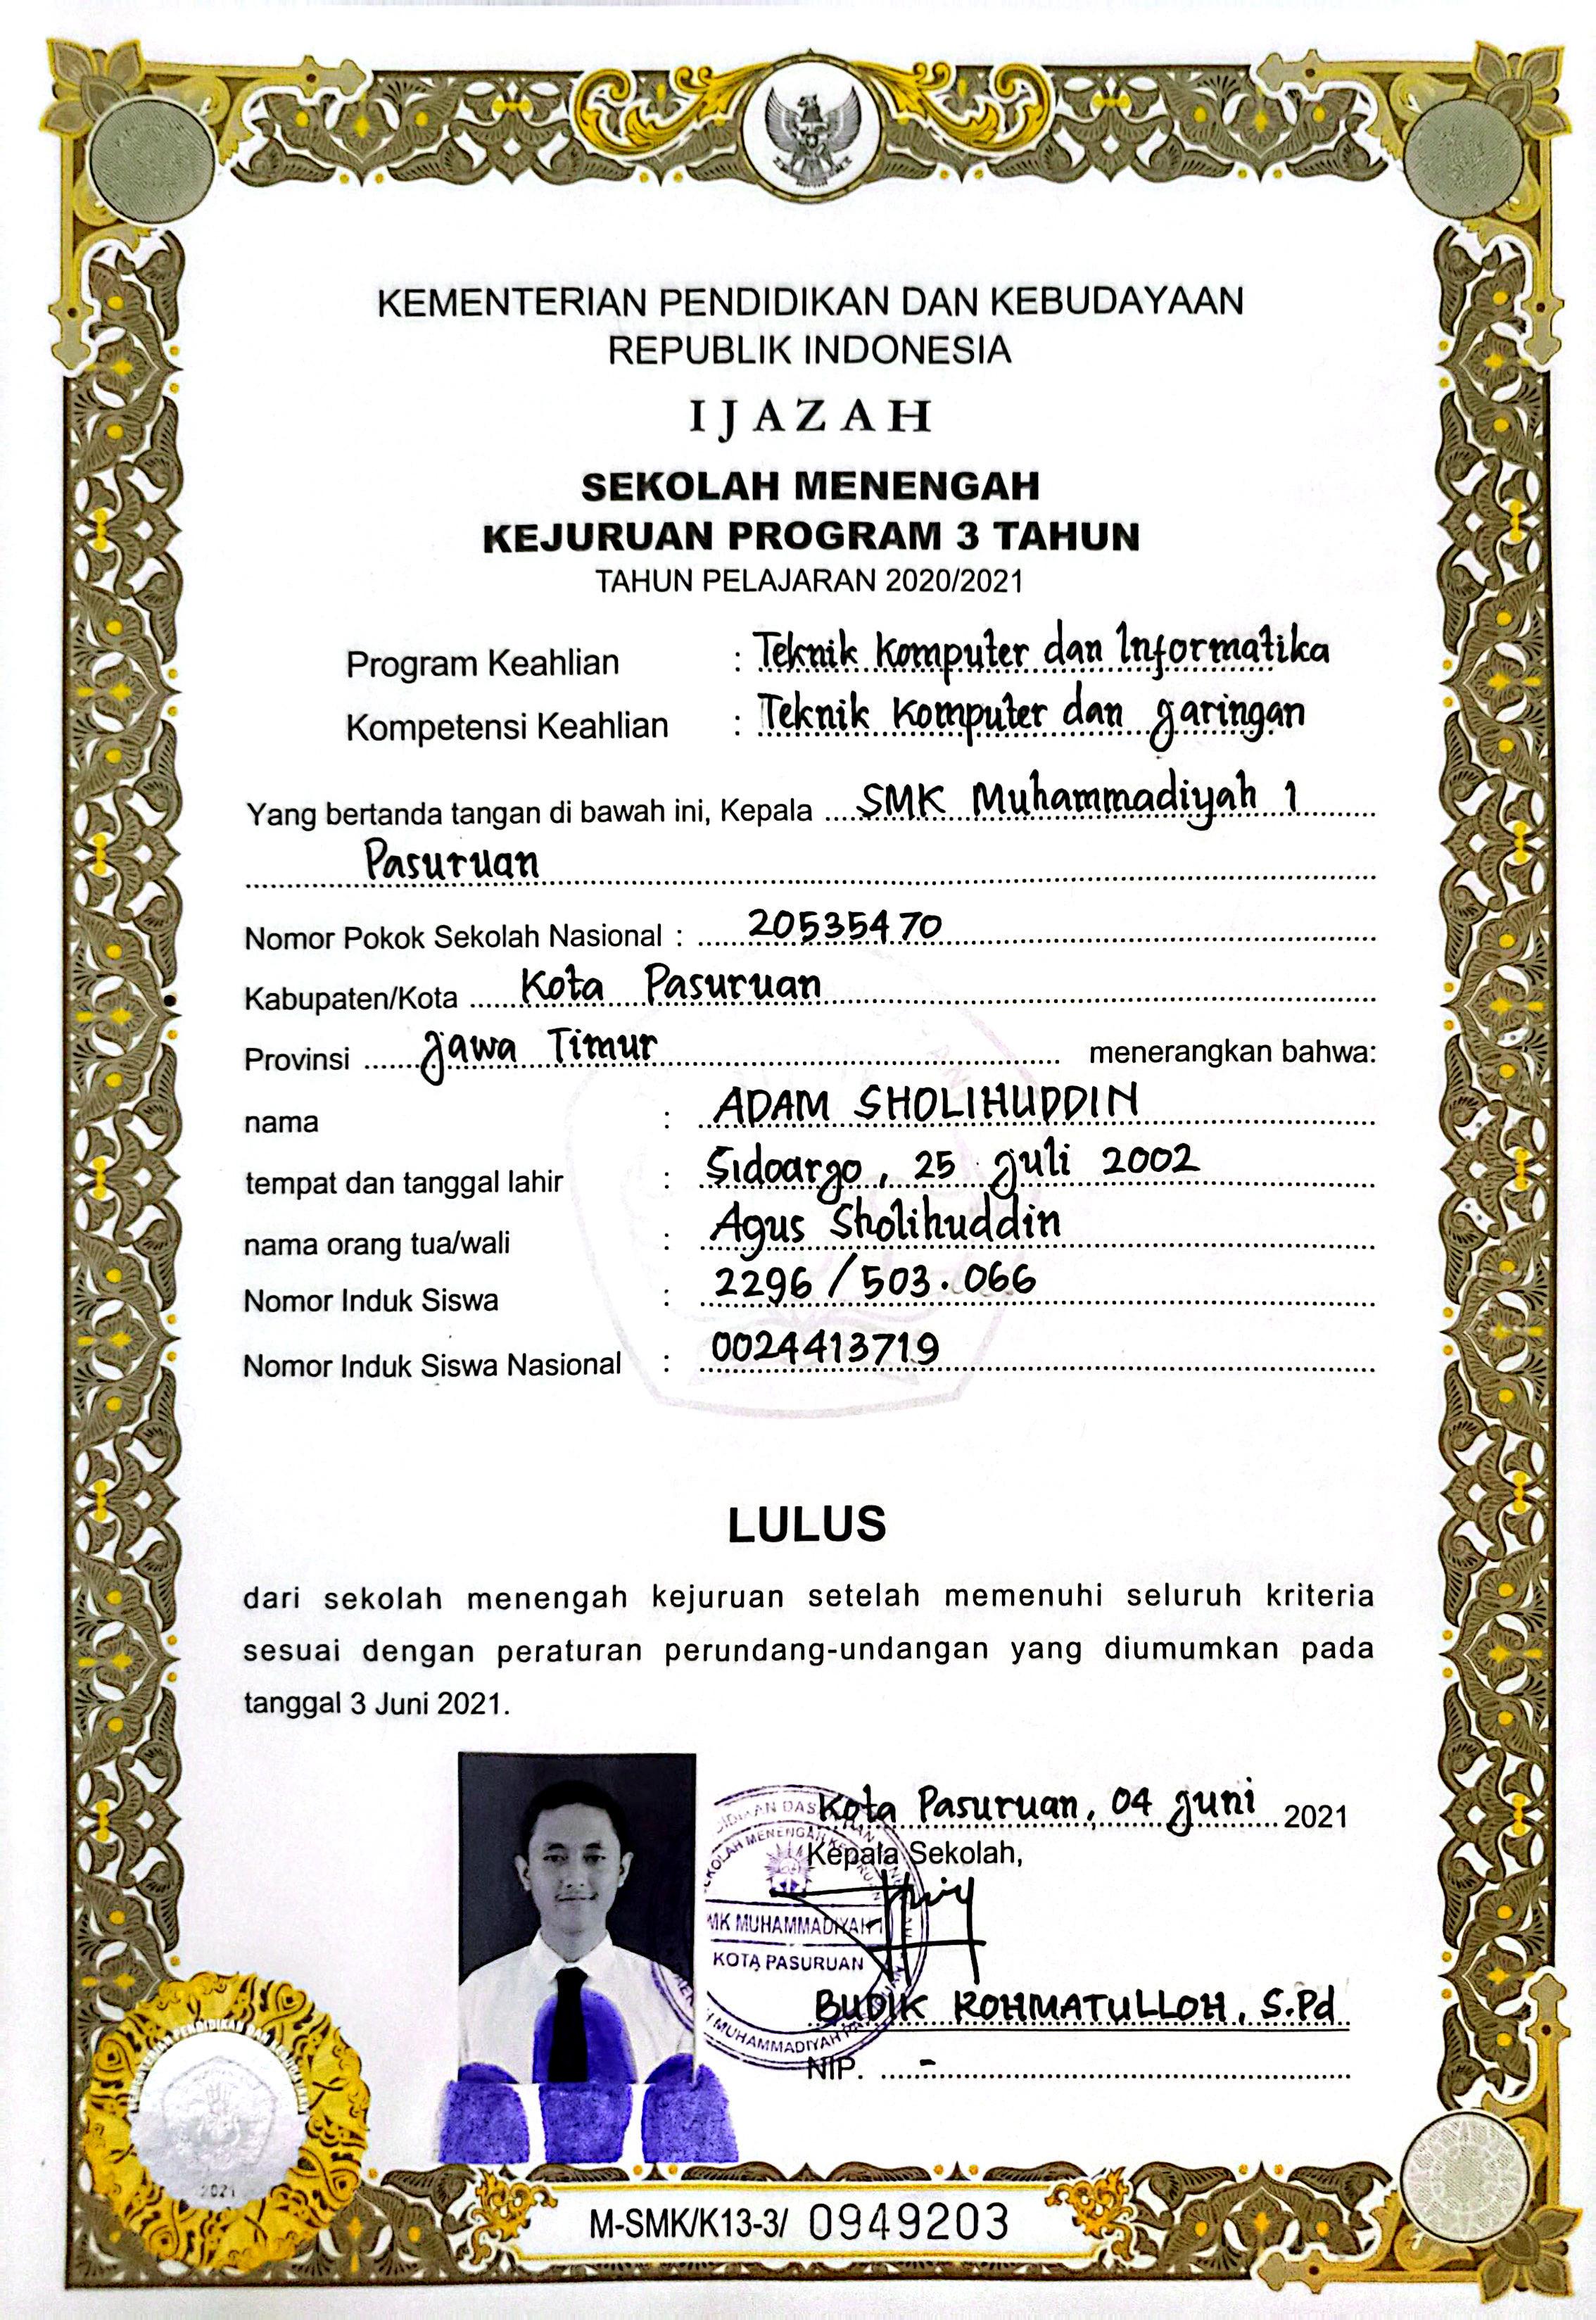 KEMENTERIAN PENDIDIKAN DAN KEBUDAYAAN
REPUBLIK INDONESIA
IJAZAH
SEKOLAH MENENGAH
KEJURUAN PROGRAM 3 TAHUN
TAHUN PELAJARAN 2020/2021
Program Keahlian : Teknik Komputer dan Informatika
Kompetensi Keahlian : Teknik Komputer dan Jaringan
Yang bertanda tangan di bawah ini, Kepala SMK Muhammadiyah 1
Pasuruan
Nomor Pokok Sekolah Nasional : 20535470
Kabupaten/Kota Kota Pasuruan
Provinsi Jawa Timur menerangkan bahwa:
nama : ADAM SHOLIHUDDIN
tempat dan tanggal lahir : Sidoarjo, 25 Juli 2002
nama orang tua/wali : Agus Sholihuddin
Nomor Induk Siswa : 2296 / 503.066
Nomor Induk Siswa Nasional : 0024413719
LULUS
dari sekolah menengah kejuruan setelah memenuhi seluruh kriteria
sesuai dengan peraturan perundang-undangan yang diumumkan pada
tanggal 3 Juni 2021.
Kota Pasuruan, 04 Juni 2021
Kepala Sekolah,
MK MUHAMMADIYAH 1
KOTA PASURUAN
BUDIK ROHMATULLOH, S.Pd
NIP. -
KEMENTERIAN PENDIDIKAN DAN KEBUDAYAAN
2021
M-SMK/K13-3/ 0949203